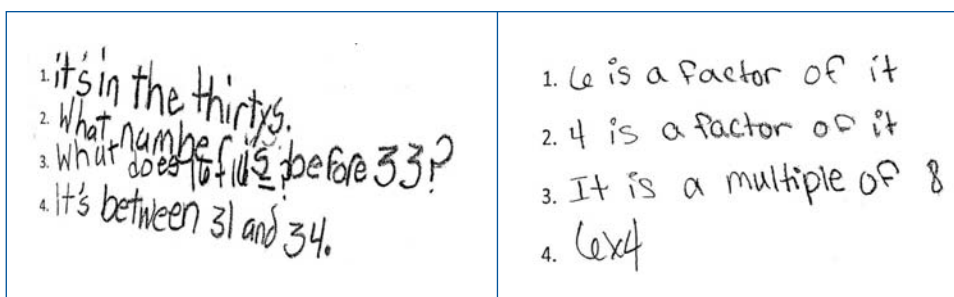 1. it's in the thirtys.
2. What numbe is before 33?
3. What does
4. It's between 31 and 34.
1. 6 is a factor of it
2. 4 is a factor of it
3. It is a multiple of 8
4. 6x4